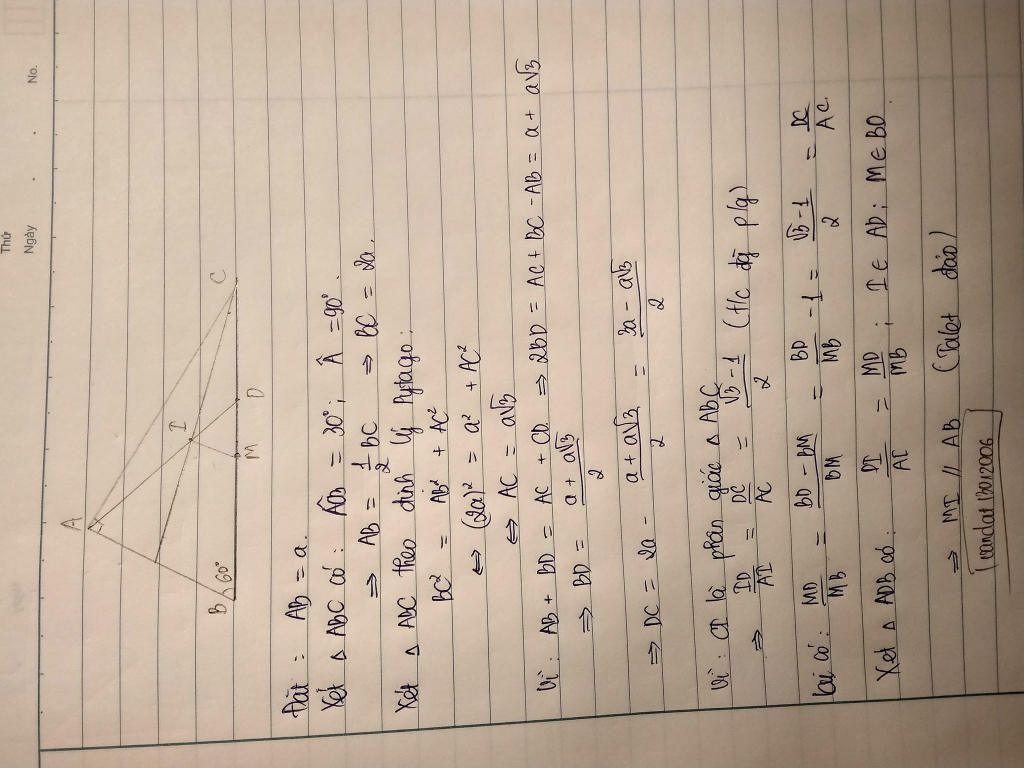 Thứ
Ngày
No.
A
I
B
60°
M
D
C
Đặt : AB = a.
Xét Δ ABC có : ÂCB = 30° ; Â = 90°.
⇒ AB = 1/2 BC ⇒ BC = 2a.
Xét Δ ABC theo định lý Pytago :
BC² = AB² + AC²
⇔ (2a)² = a² + AC²
⇔ AC = a√3
Vì : AB + BD = AC + CD ⇒ 2BD = AC + BC - AB = a + a√3
⇒ BD = (a + a√3)/2
⇒ DC = 2a - (a + a√3)/2 = (3a - a√3)/2
Vì : CI là phân giác Δ ABC
⇒ ID/AI = DC/AC = (√3 - 1)/2 (t/c đg p/g)
Lại có : MD/MB = (BD - BM)/BM = BD/MB - 1 = (√3 - 1)/2 = DC/AC.
Xét Δ ADB có : DI/AI = MD/MB ; I ∈ AD ; M ∈ BD.
⇒ MI // AB (Talet đảo)
tandat13012006